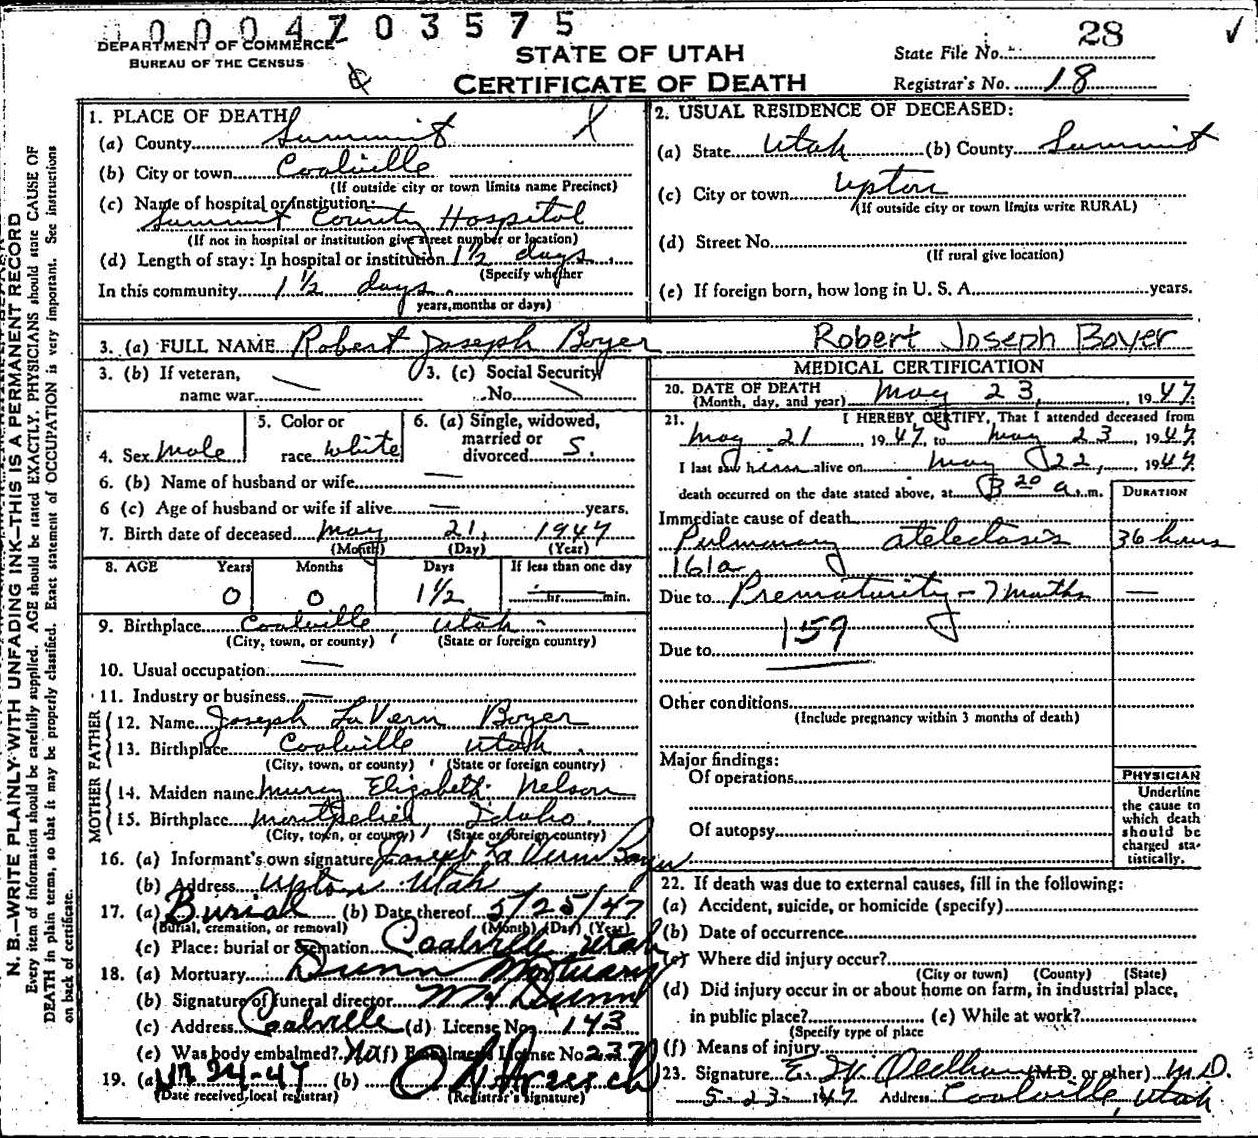 0004703575
DEPARTMENT OF COMMERCE
BUREAU OF THE CENSUS
STATE OF UTAH
CERTIFICATE OF DEATH
State File No. 28
Registrar's No. 18
N. B.—WRITE PLAINLY WITH UNFADING INK—THIS IS A PERMANENT RECORD
Every item of information should be carefully supplied. AGE should be stated EXACTLY. PHYSICIANS should state CAUSE OF
DEATH in plain terms, so that it may be properly classified. Exact statement of OCCUPATION is very important. See instructions
on back of certificate.
1. PLACE OF DEATH
(a) County Summit X
(b) City or town Coalville
(If outside city or town limits name Precinct)
(c) Name of hospital or institution:
Summit County Hospital
(If not in hospital or institution give street number or location)
(d) Length of stay: In hospital or institution 1½ days.
(Specify whether
In this community 1½ days.
years, months or days)
2. USUAL RESIDENCE OF DECEASED:
(a) State Utah (b) County Summit
(c) City or town Upton
(If outside city or town limits write RURAL)
(d) Street No.
(If rural give location)
(e) If foreign born, how long in U. S. A. years.
3. (a) FULL NAME Robert Joseph Boyer Robert Joseph Boyer
3. (b) If veteran, 3. (c) Social Security
name war No.
4. Sex Male
5. Color or
race White
6. (a) Single, widowed,
married or
divorced S.
6. (b) Name of husband or wife
6 (c) Age of husband or wife if alive years.
7. Birth date of deceased May 21, 1947
(Month) (Day) (Year)
8. AGE Years Months Days If less than one day
0 0 1½ hr. min.
9. Birthplace Coalville, Utah
(City, town, or county) (State or foreign country)
10. Usual occupation
11. Industry or business
FATHER
12. Name Joseph LaVern Boyer
13. Birthplace Coalville Utah.
(City, town, or county) (State or foreign country)
MOTHER
14. Maiden name Elizabeth Nelson
15. Birthplace Montpelier, Idaho.
(City, town, or county) (State or foreign country)
16. (a) Informant's own signature Joseph LaVern Boyer
(b) Address Upton Utah
17. (a) Burial (b) Date thereof 5/25/47
(Burial, cremation, or removal) (Month) (Day) (Year)
(c) Place: burial or cremation Coalville Utah
18. (a) Mortuary Dunn Mortuary
(b) Signature of funeral director Dunn
(c) Address Coalville (d) License No. 143
(e) Was body embalmed? No (f) Embalmer's License No 237
19. (a) 24-47 (b)
(Date received local registrar) (Registrar's signature)
MEDICAL CERTIFICATION
20. DATE OF DEATH
(Month, day, and year) May 23, 1947.
21. I HEREBY CERTIFY, That I attended deceased from
May 21, 1947, to May 23, 1947.
I last saw him alive on May 22, 1947
death occurred on the date stated above, at 3 20 a. m.
DURATION
Immediate cause of death
Pulmonary atelectasis 36 hours
161a
Due to Prematurity - 7 months
159
Due to
Other conditions
(Include pregnancy within 3 months of death)
Major findings:
Of operations
Of autopsy
PHYSICIAN
Underline
the cause to
which death
should be
charged sta-
tistically.
22. If death was due to external causes, fill in the following:
(a) Accident, suicide, or homicide (specify)
(b) Date of occurrence
(c) Where did injury occur?
(City or town) (County) (State)
(d) Did injury occur in or about home on farm, in industrial place,
in public place? (e) While at work?
(Specify type of place
(f) Means of injury
23. Signature Oldham (M.D. or other) M.D.
5-23-1947 Address Coalville, Utah